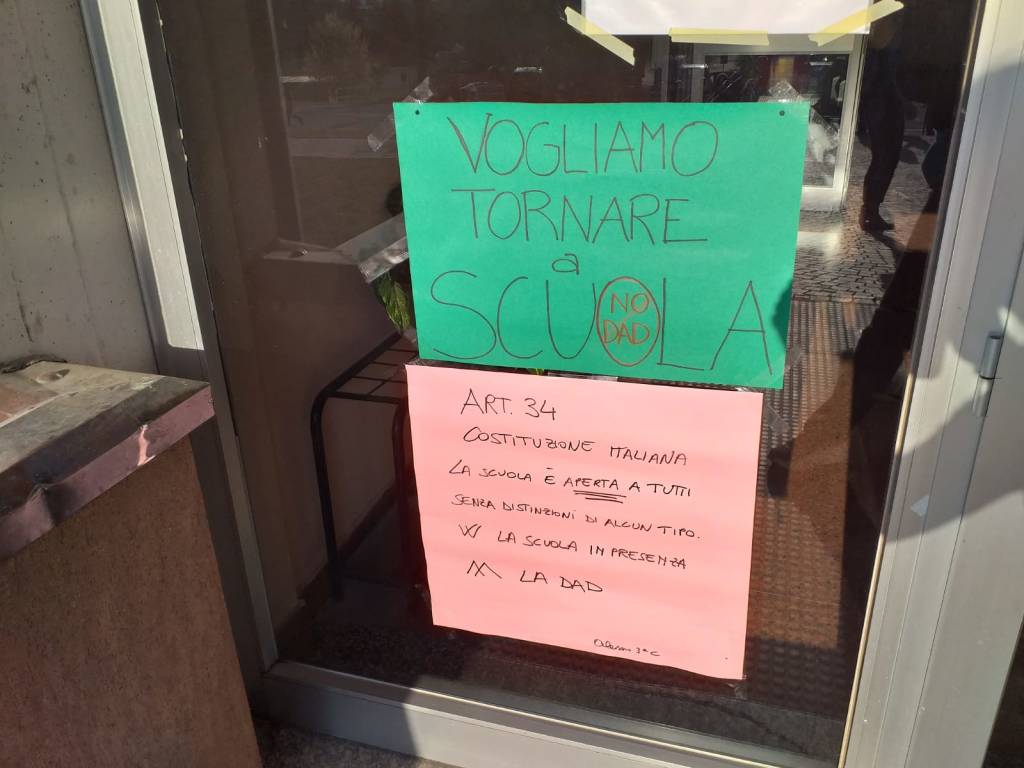 VOGLIAMO
TORNARE
a
SCUOLA
NO
DAD
ART. 34
COSTITUZIONE ITALIANA
LA SCUOLA È APERTA A TUTTI
SENZA DISTINZIONI DI ALCUN TIPO.
W LA SCUOLA IN PRESENZA
M LA DAD
3ª C